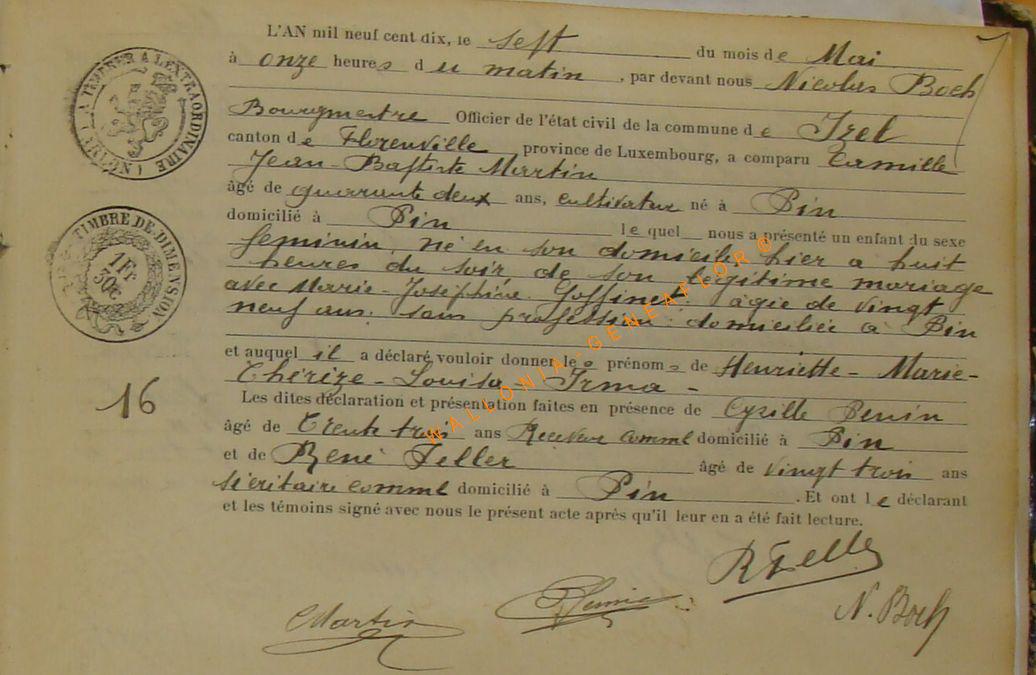 L'AN mil neuf cent dix, le sept du mois de Mai
à onze heures du matin, par devant nous Nicolas Boch
Bourgmestre Officier de l'état civil de la commune de Izel
canton de Florenville province de Luxembourg, a comparu Camille
Jean-Baptiste Martin
âgé de quarante deux ans, cultivateur né à Pin
domicilié à Pin le quel nous a présenté un enfant du sexe
feminin, né en son domicile hier a huit
heures du soir de son légitime mariage
avec Marie-Joséphine Goffinet agée de vingt
neuf ans sans profession domiciliée à Pin
et auquel il a déclaré vouloir donner le s prénoms de Henriette-Marie-
Thérèze-Louisa-Irma-
Les dites déclaration et présentation faites en présence de Cyrille
âgé de Trente trois ans Receveur comml domicilié à Pin
et de René Feller âgé de vingt trois ans
sécritaire comml domicilié à Pin. Et ont le déclarant
et les témoins signé avec nous le présent acte après qu'il leur en a été fait lecture.
16
A TIMBRER A L'EXTRAORDINAIRE
TIMBRE DE DIMENSION
1Fr
30c
WALLONIA-GENEAFLOR ©
RFeller
CMartin
N. Boch